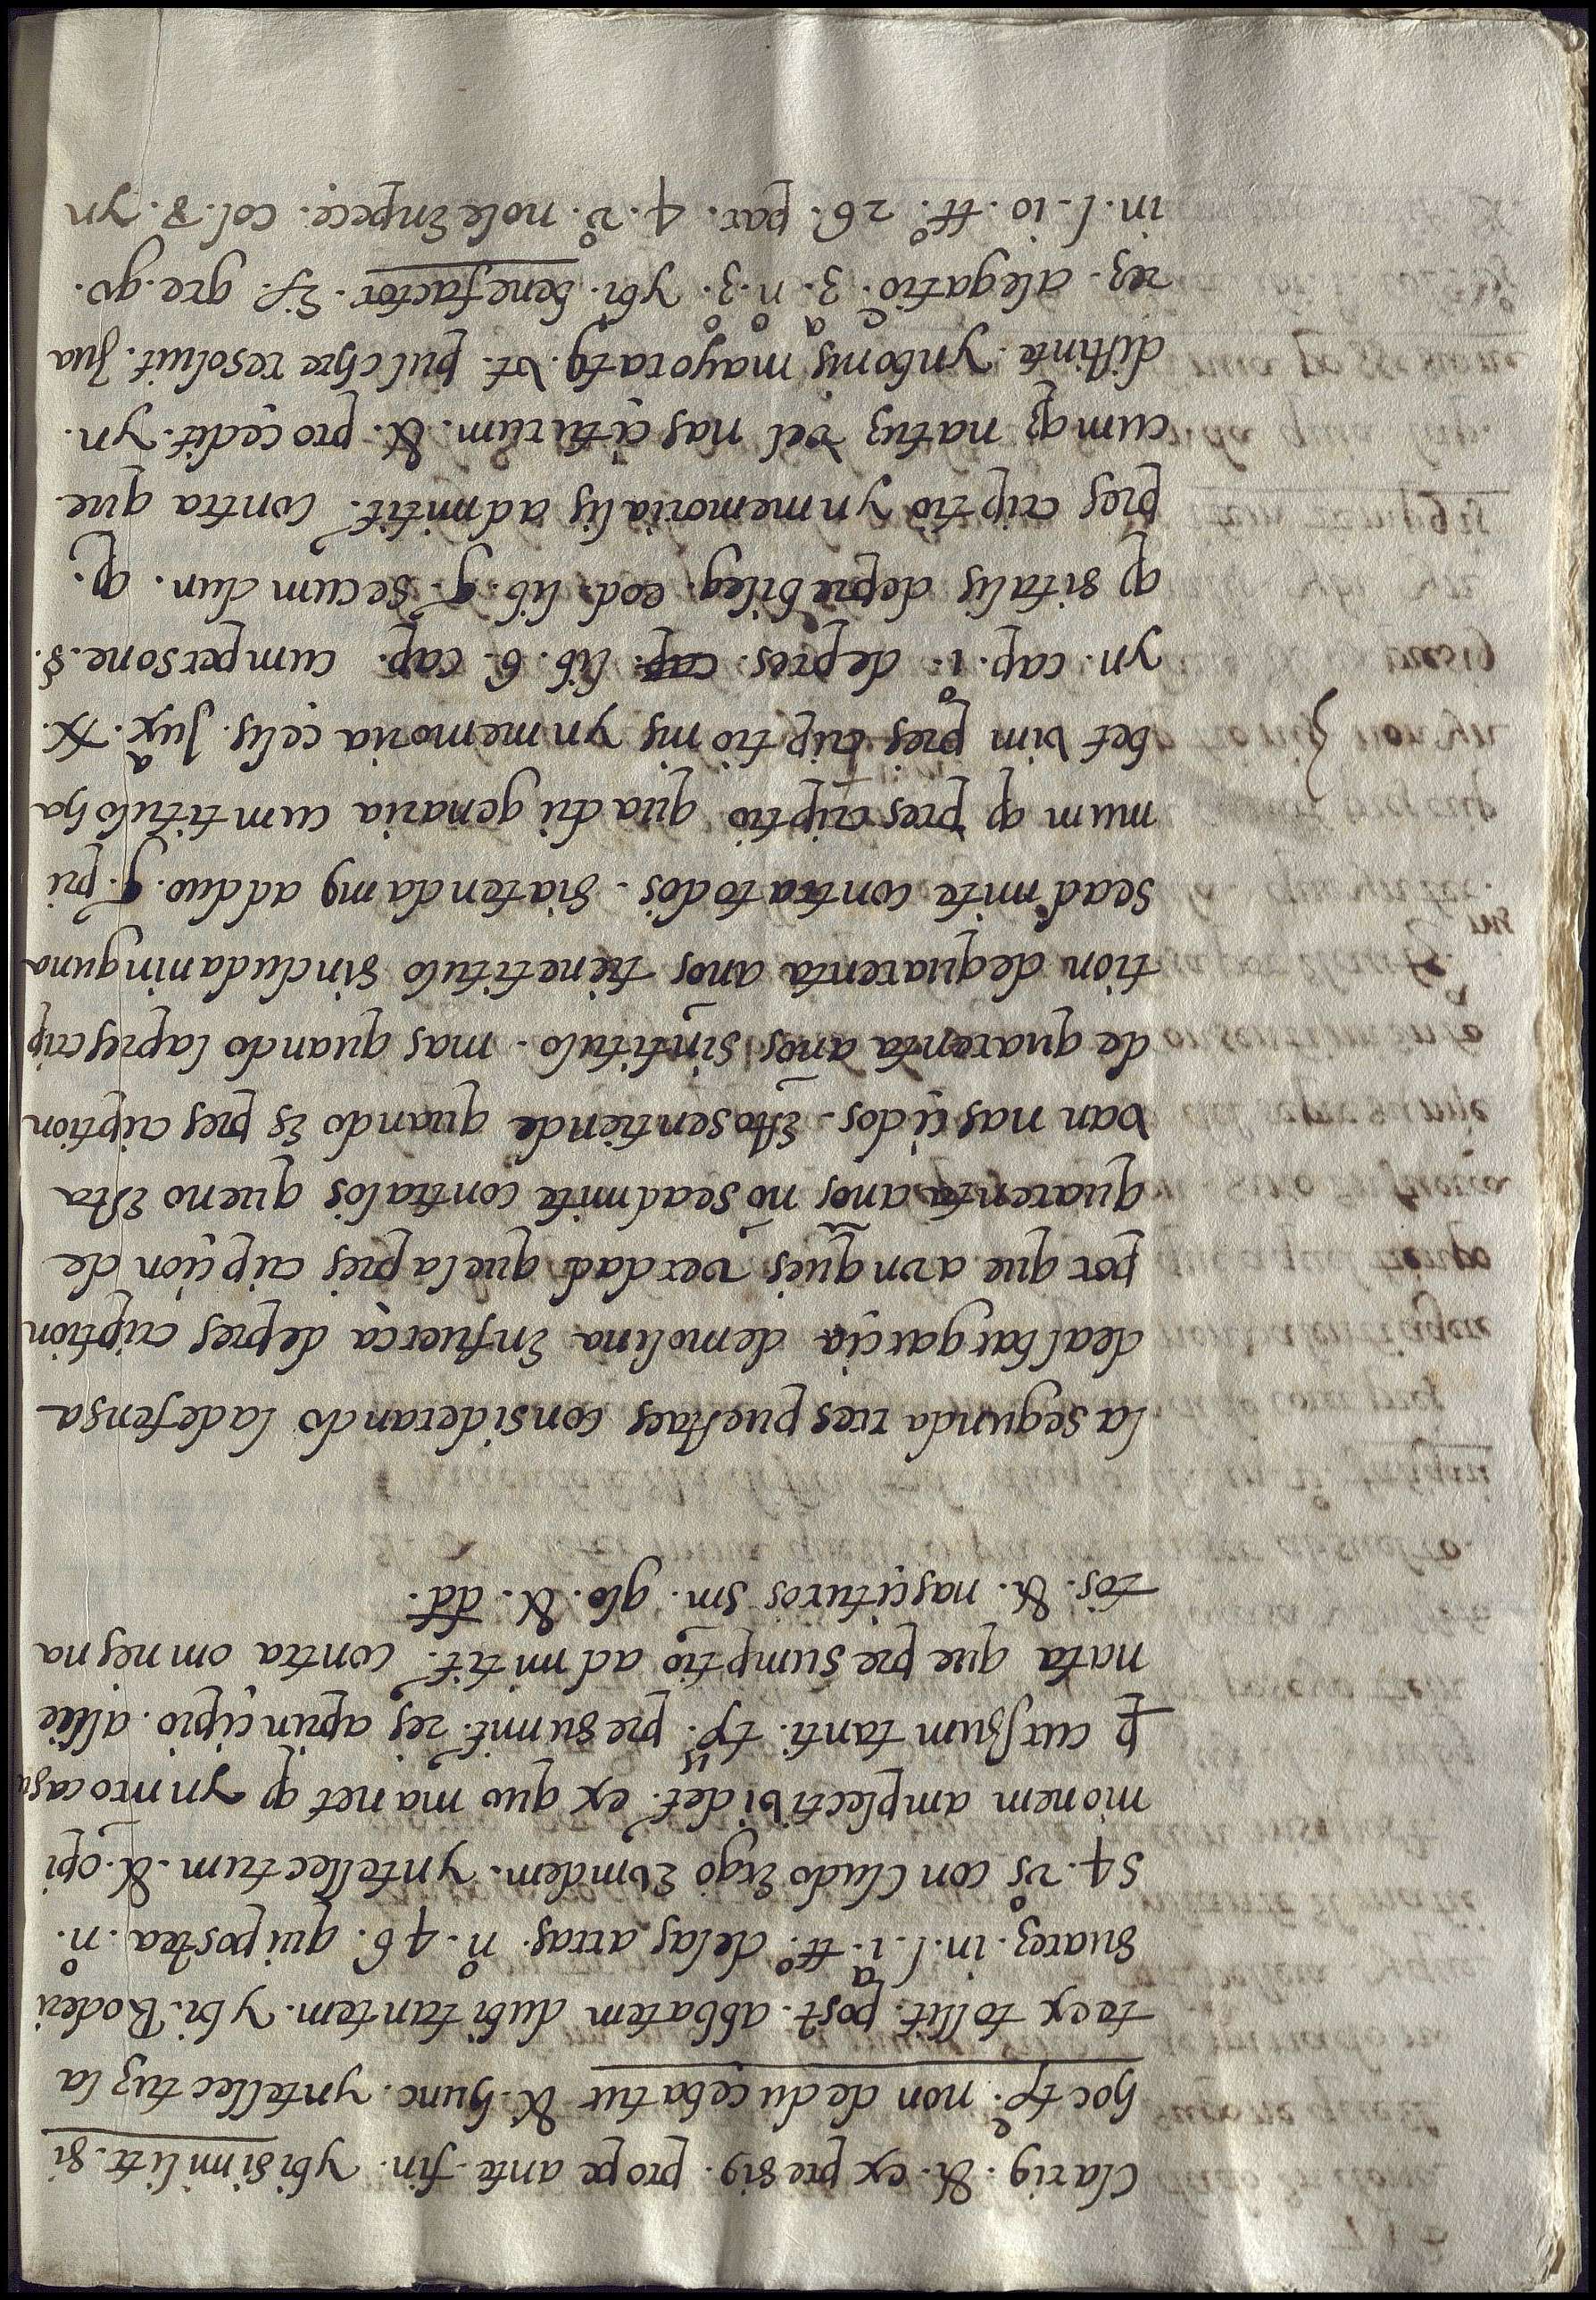 clariq. & expresiq. prope ante. fin. ybi similitr. si
hoc tpe. non deducebatur & hunc. yntellectuz la
te extollit. post. abbatem dubitantem. ybi. Roderi
suarez. in. l. 1. tto. de las arras. no. 46. qui postea. no.
54. vs concludo ergo eumdem. yntellectum. & opi
nionem amplecti bidet. ex quo manet q ynnrocasu
p curssum tanti. tpis. presumit. res aprincipio. allie
nata que presumptio admitit. contra omnes na
tos. & nascituros sm. glo. & dd.
la segunda rrespuestaes considerando ladefensa
dealbargarcia demolina enfuerça deprescription
por que avnques verdad quelaprescripçion de
quarenta anos no seadmite contralos queno esta
van nasçidos. estosentiende quando es prescription
de quarenta años sintitulo. mas quando laprescrip
tion dequarenta anos tienetitulo sindudaninguna
seadmite contratodos. siatendamq adduo. q. pri
mum q prescriptio quadrigenaria cum titulo ha
bet vim prescriptionis ynmemoria çelis. Juxa. tx.
yn. cap. 1. depres. lib. 6. cap. cumpersone. §.
q sitalis deprebileg. eod. lib. q. secumdun. q.
prescriptio ynmemorialis admitit. contra que
cumq natuz vel nasçiturum. & proçedit. yn.
distinte ynbonis mayoratq. vt. pulchre resoluit. Jua
rez. alegatioe. 3. no. 3. ybi. benefactor. Ef. gre. go.
in. l. 10. tto. 26. par. 4. vo. nole enpeçe. col. 8. yn